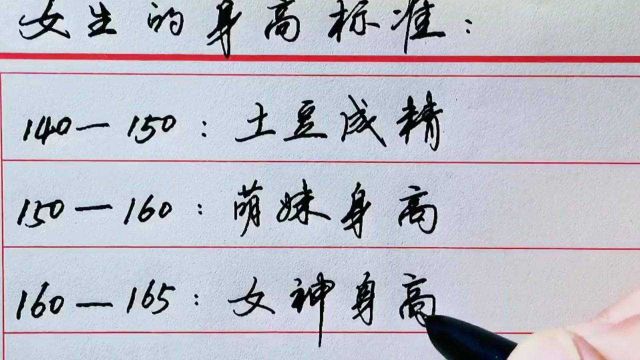 女生的身高标准:
140—150:土豆成精
150—160:萌妹身高
160—165:女神身高